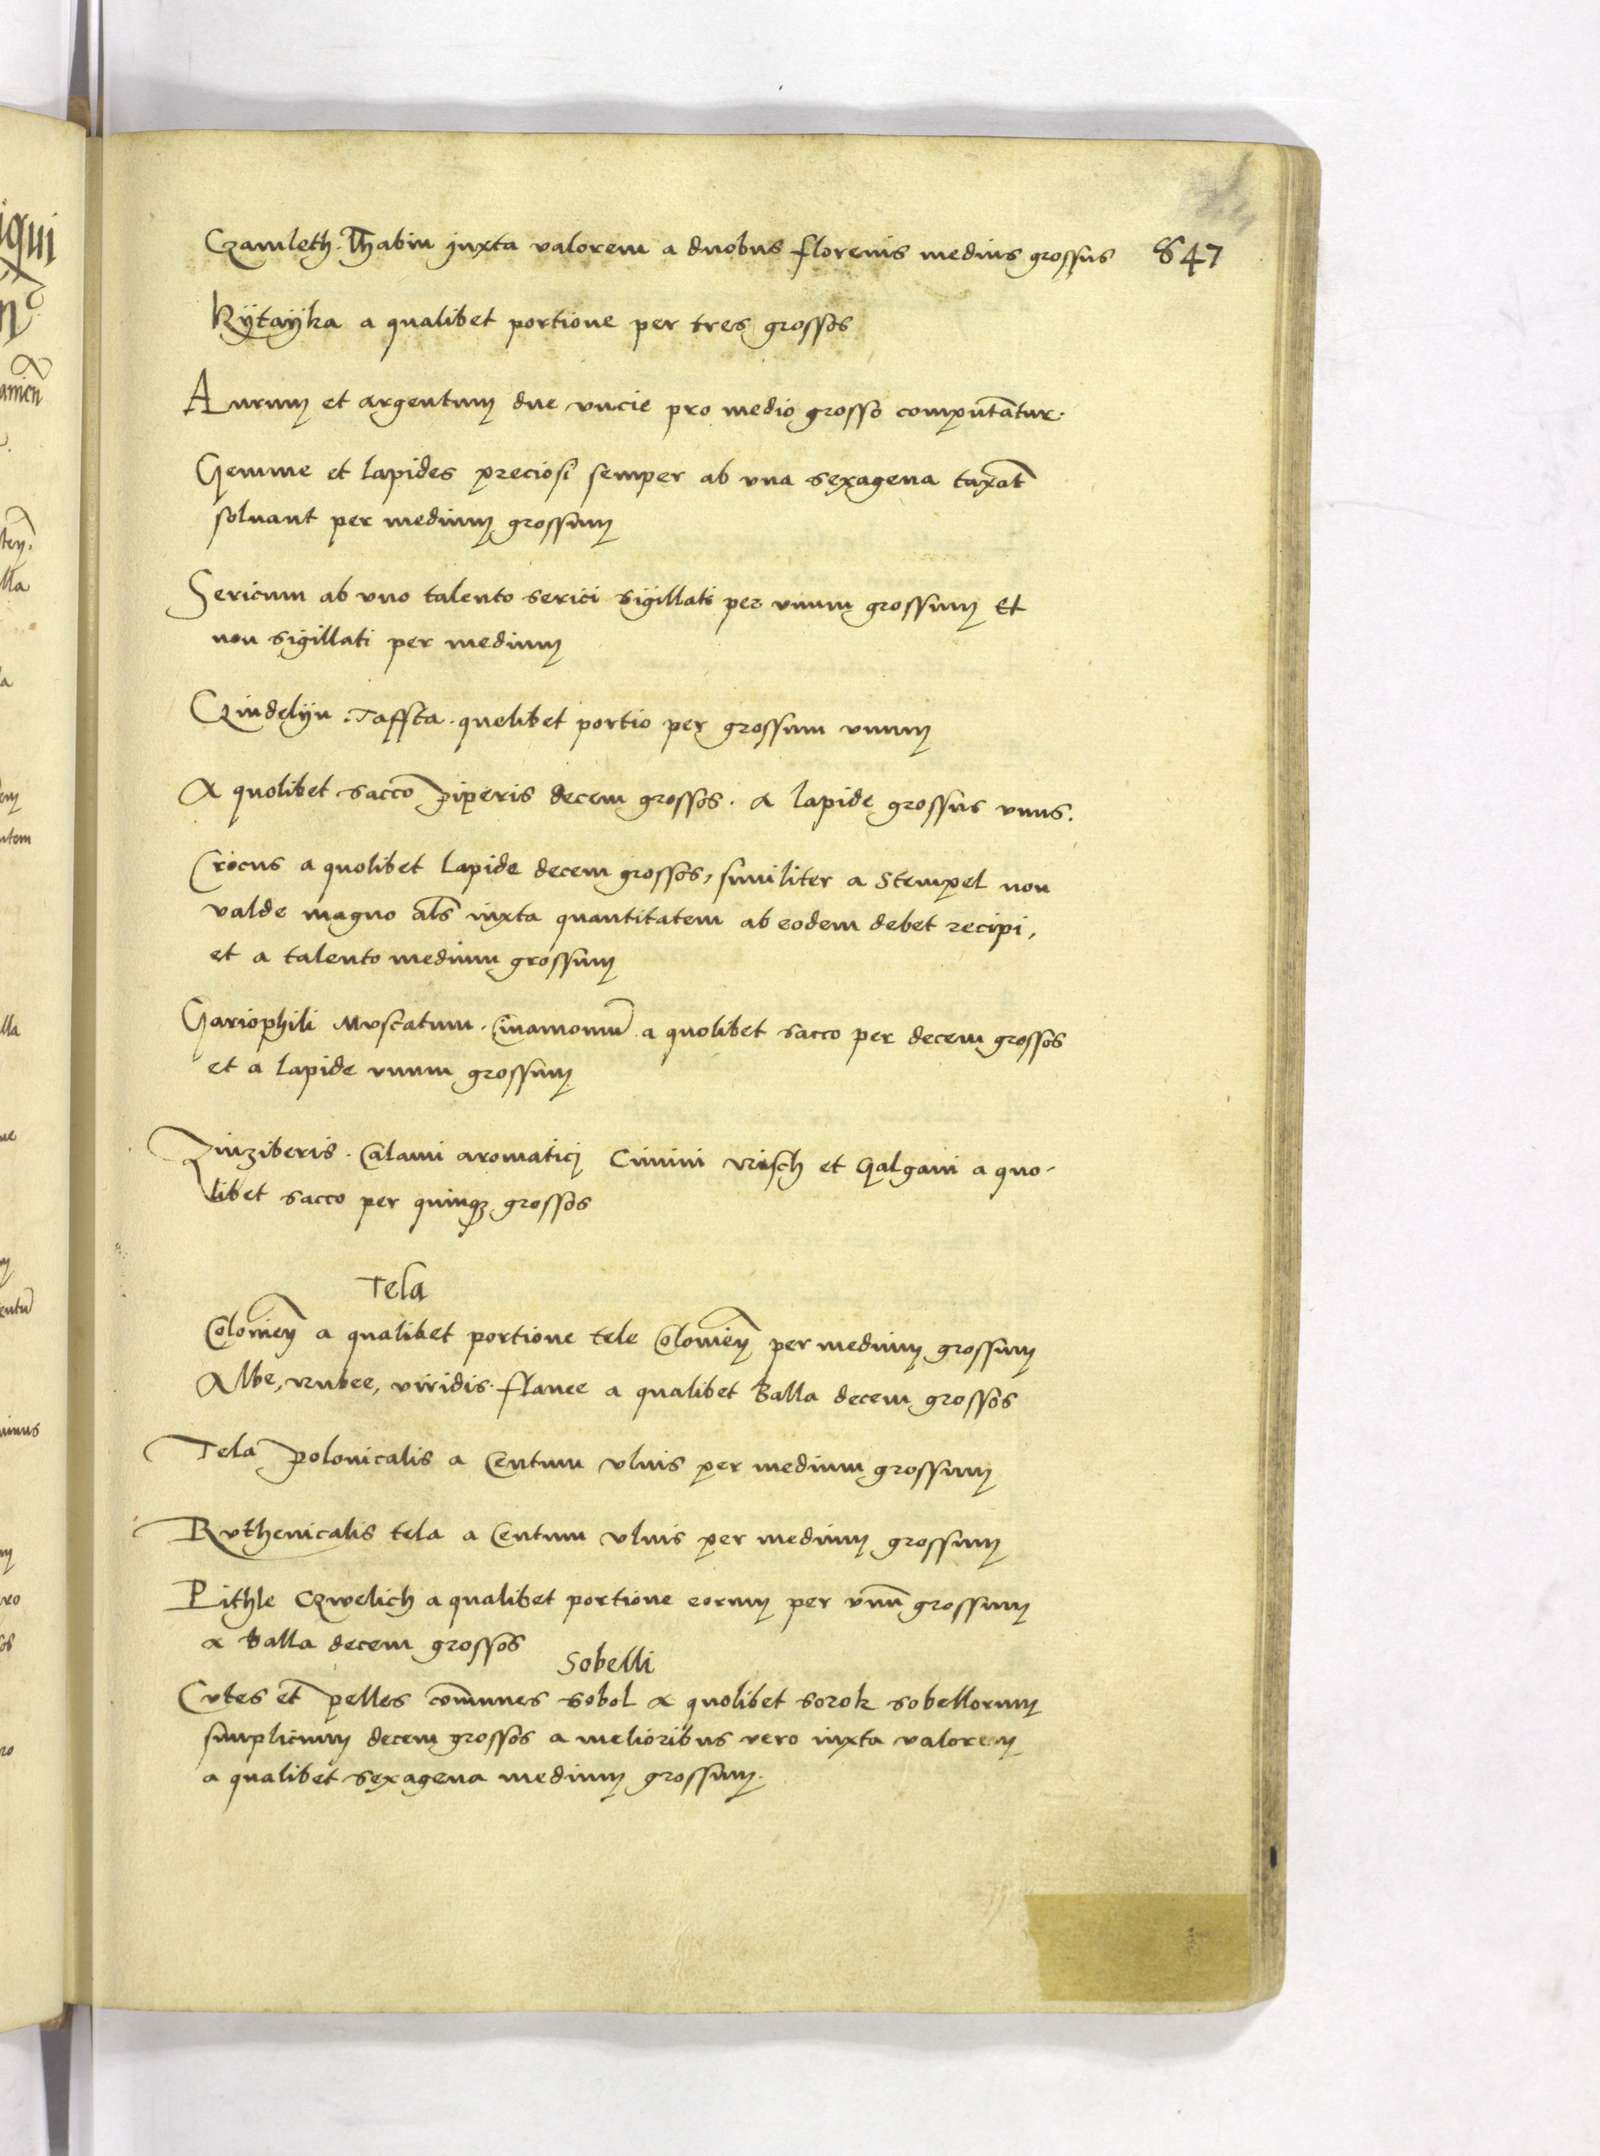 Czamleth . Thabin juxta valorem a duobus florenis medius grossus 847
Kÿtaÿka a qualibet portione per tres grossos
Aurum et argentum due vncie pro medio grosso computantur.
Gemme et lapides preciosi semper ab vna sexagena taxat
soluant per medium grossum
Sericum ab vno talento serici sigillati per vnum grossum Et
non sigillati per medium
Czindelÿn . Taffta . quelibet portio per grossum vnum
A quolibet sacco piperis decem grossos . a lapide grossus vnus.
Crocus a quolibet lapide decem grossos, similiter a Stempel non
valde magno als iuxta quantitatem ab eodem debet recipi,
et a talento medium grossum
Gariophili Muscatum . Cinamomu a quolibet sacco per decem grossos
et a lapide vnum grossum
Zinziberis . Calami aromatici Cimini Risch et Galgani a quo-
libet sacco per quinqz grossos
Tela
Colonien a qualibet portione tele Colonien per medium grossum
Albe, rubee, viridis . flauee a qualibet Balla decem grossos
Tela polonicalis a Centum vlnis per medium grossum
Ruthenicalis tela a Centum vlnis per medium grossum
Pithle Czwelich a qualibet portione eorum per vnu grossum
a Balla decem grossos
Sobelli
Cutes et pelles comunes sobol a quolibet sorok sobellorum
simplicium decem grossos a melioribus vero iuxta valorem
a qualibet sexagena medium grossum.